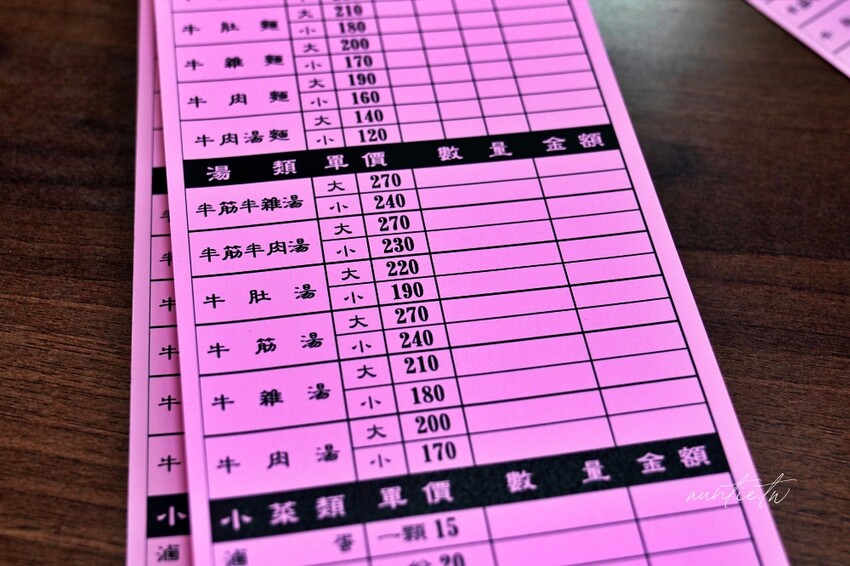 大 210
牛肚麵 小 180
大 200
牛雜麵 小 170
大 190
牛肉麵 小 160
大 140
牛肉湯麵 小 120
湯類 單價 數量 金額
半筋半雜湯 大 270
小 240
半筋半肉湯 大 270
小 230
牛肚湯 大 220
小 190
牛筋湯 大 270
小 240
牛雜湯 大 210
小 180
牛肉湯 大 200
小 170
小菜類 單價 數量 金額
滷蛋 一顆 15
20
auntie.tw
牛
牛
牛
小
滷